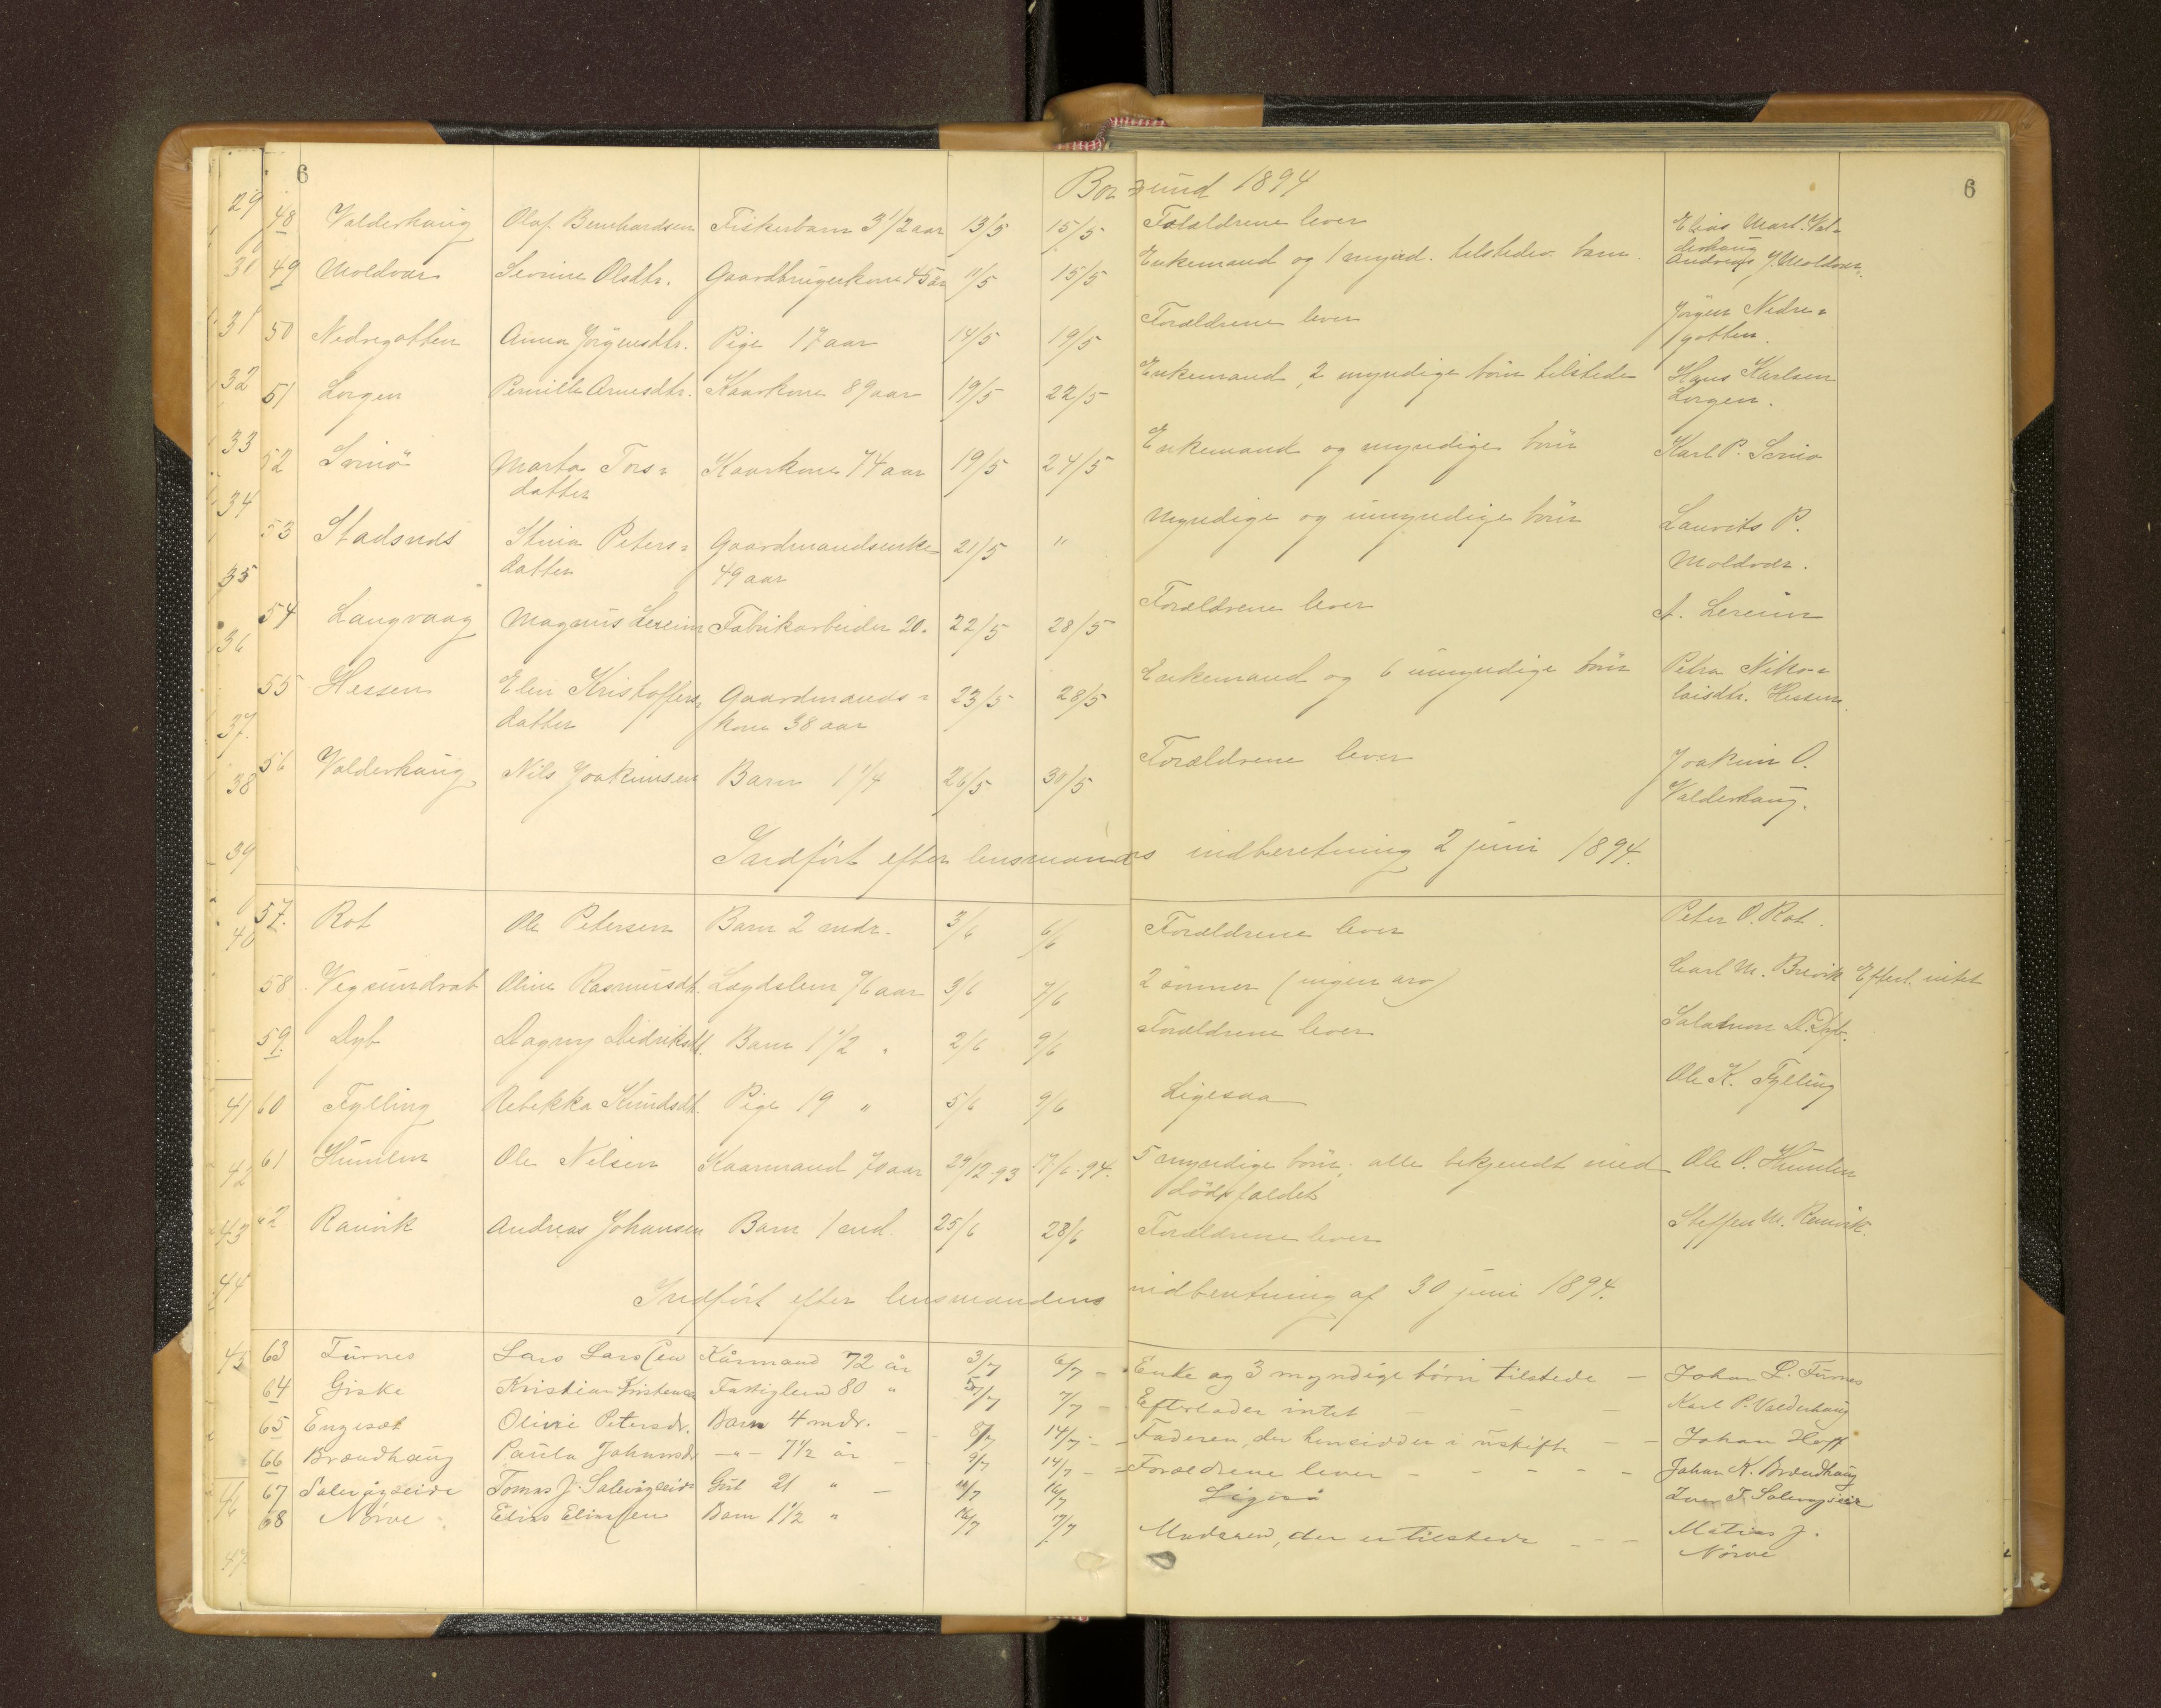 6
6
Borgund 1894
48 Valderhaug Olaf Bernhardsen Fiskerbarn 3 1/2 aar 13/5 15/5 Forældrene lever Elias Mart. Val-
derhaug
49 Moldvær Severine Olsdtr. Gaardbrugerkone 45 aar 11/5 15/5 Enkemand og 1 mynd. tilstedev. barn. Andreas J. Moldvær.
50 Nedregotten Anna Jörgensdtr. Pige 17 aar 14/5 19/5 Forældrene lever Jörgen Nedre-
gotten.
51 Lorgen Pernille Arnesdtr. Kaarkone 89 aar 19/5 22/5 Enkemand, 2 myndige börn tilstede Hans Karlsen
Lorgen.
52 Svinö Marta Tors-
datter Kaarkone 74 aar 19/5 24/5 Enkemand og myndige börn Karl P. Svinö
53 Stadsnes Stina Peters-
datter Gaardmandsenke
49 aar 21/5 " Myndige og umyndige börn Laurits P.
Moldvær.
54 Langvaag Magnus Lereim Fabrikarbeider 20. 22/5 28/5 Forældrene lever A. Lereim
55 Hessen Elen Kristoffers-
datter Gaardmands-
kone 38 aar 23/5 28/5 Enkemand og 6 umyndige börn Petra Niko-
laisdtr. Hessen.
56 Valderhaug Nils Joakimsen Barn 1 1/4 26/5 30/5 Forældrene lever Joakim O.
Valderhaug.
Indfört efter lensmands indberetning 2 juni 1894.
57. Rot Ole Petersen Barn 2 mdr. 3/6 6/6 Forældrene lever Peter O. Rot.
58 Vegsundrot Oline Rasmusdt. Lægdslem 76 aar 3/6 7/6 2 sönner (ingen arv) Carl M. Brevik Efterl. intet
59. Dyb Dagny Didriksdt. Barn 1 1/2 " 2/6 9/6 Forældrene lever Salamon D. Dyb.
60 Fylling Rebekka Knudsdt. Pige 19 " 5/6 9/6 Ligesaa Ole K. Fylling
61 Humlen Ole Nilsen Kaarmand 70 aar 29/12 93 17/6 94. 5 myndige börn, alle bekjendt med
dödsfaldet Ole O. Humlen
62 Ramvik Andreas Johansen Barn 1 md. 25/6 28/6 Forældrene lever Steffen M. Remvik.
Indfört efter lensmandens indberetning af 30 juni 1894.
63 Furnes Lars Larssen Kårmand 72 år 3/7 6/7 - Enke og 3 myndige børn tilstede - Johan L. Furnes
64 Giske Kristian Kristensen Fattiglem 80 " 5/7 7/7 - Efterlader intet - - - Karl P. Valderhaug
65 Engeset Oline Petersdr. Barn 4 mdr. 8/7 14/7 - Faderen, der hensidder i uskifte - - Johan Hoff
66 Brændhaug Paula Johansdr -"- 7 1/2 år - 9/7 14/7 - Forældrene lever - - - - - Johan K. Brændhaug
67 Salevigseide Tomas J. Salevigseide Gut 21 " - 11/7 16/7 Ligeså Iver T. Salevigseide
68 Nørve Elias Eliassen Barn 1 1/2 " 16/7 17/7 Moderen, der er tilstede - - - Matias J.
Nørve
29
31
31
32
33
34
35
36
37.
38
39
40
41
42
43
44
45
46
47